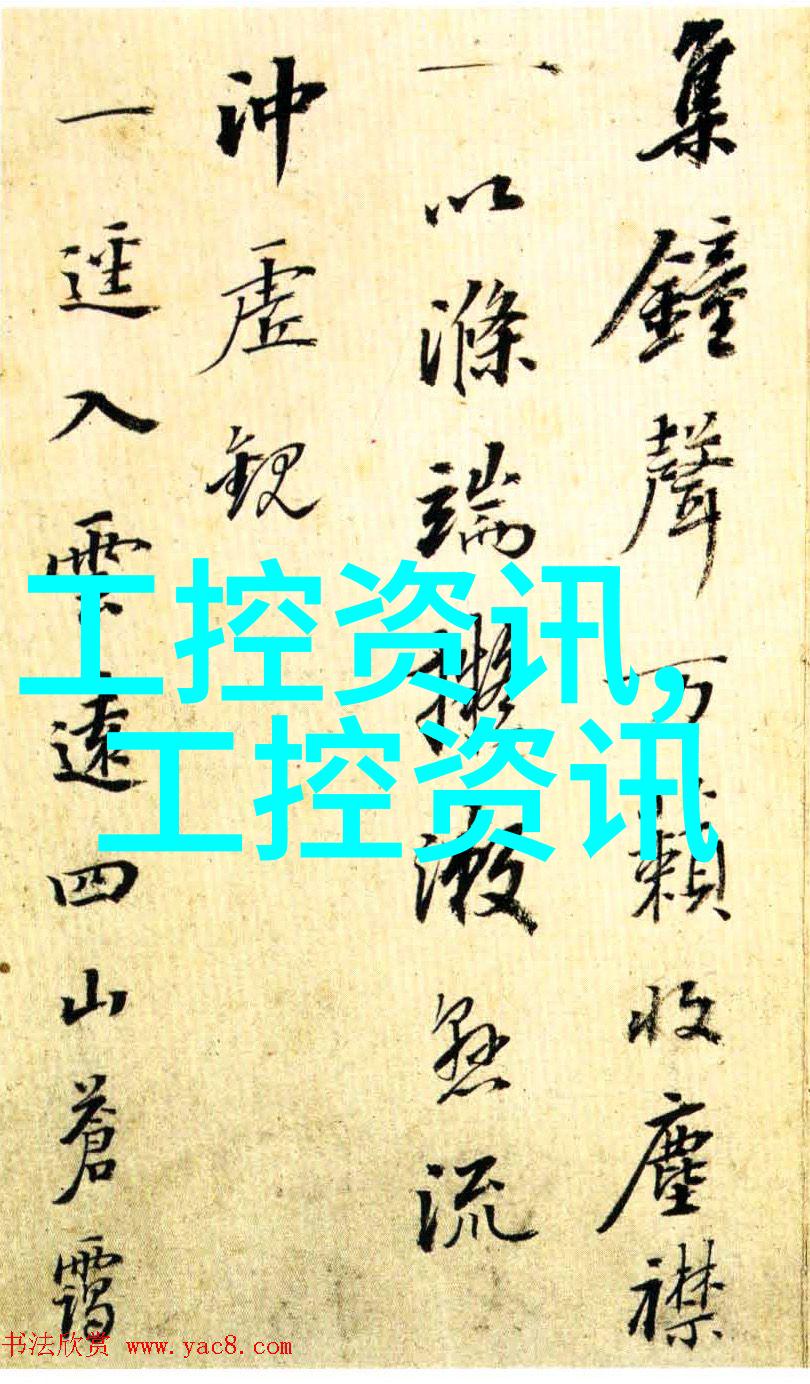 集鐘聲万籟收塵襟
一以滌端擬漱懸流
沖虛觀
一逕入雲遠四山蒼靄
工控资讯,
工控资讯
书法欣赏 www.yac8.com